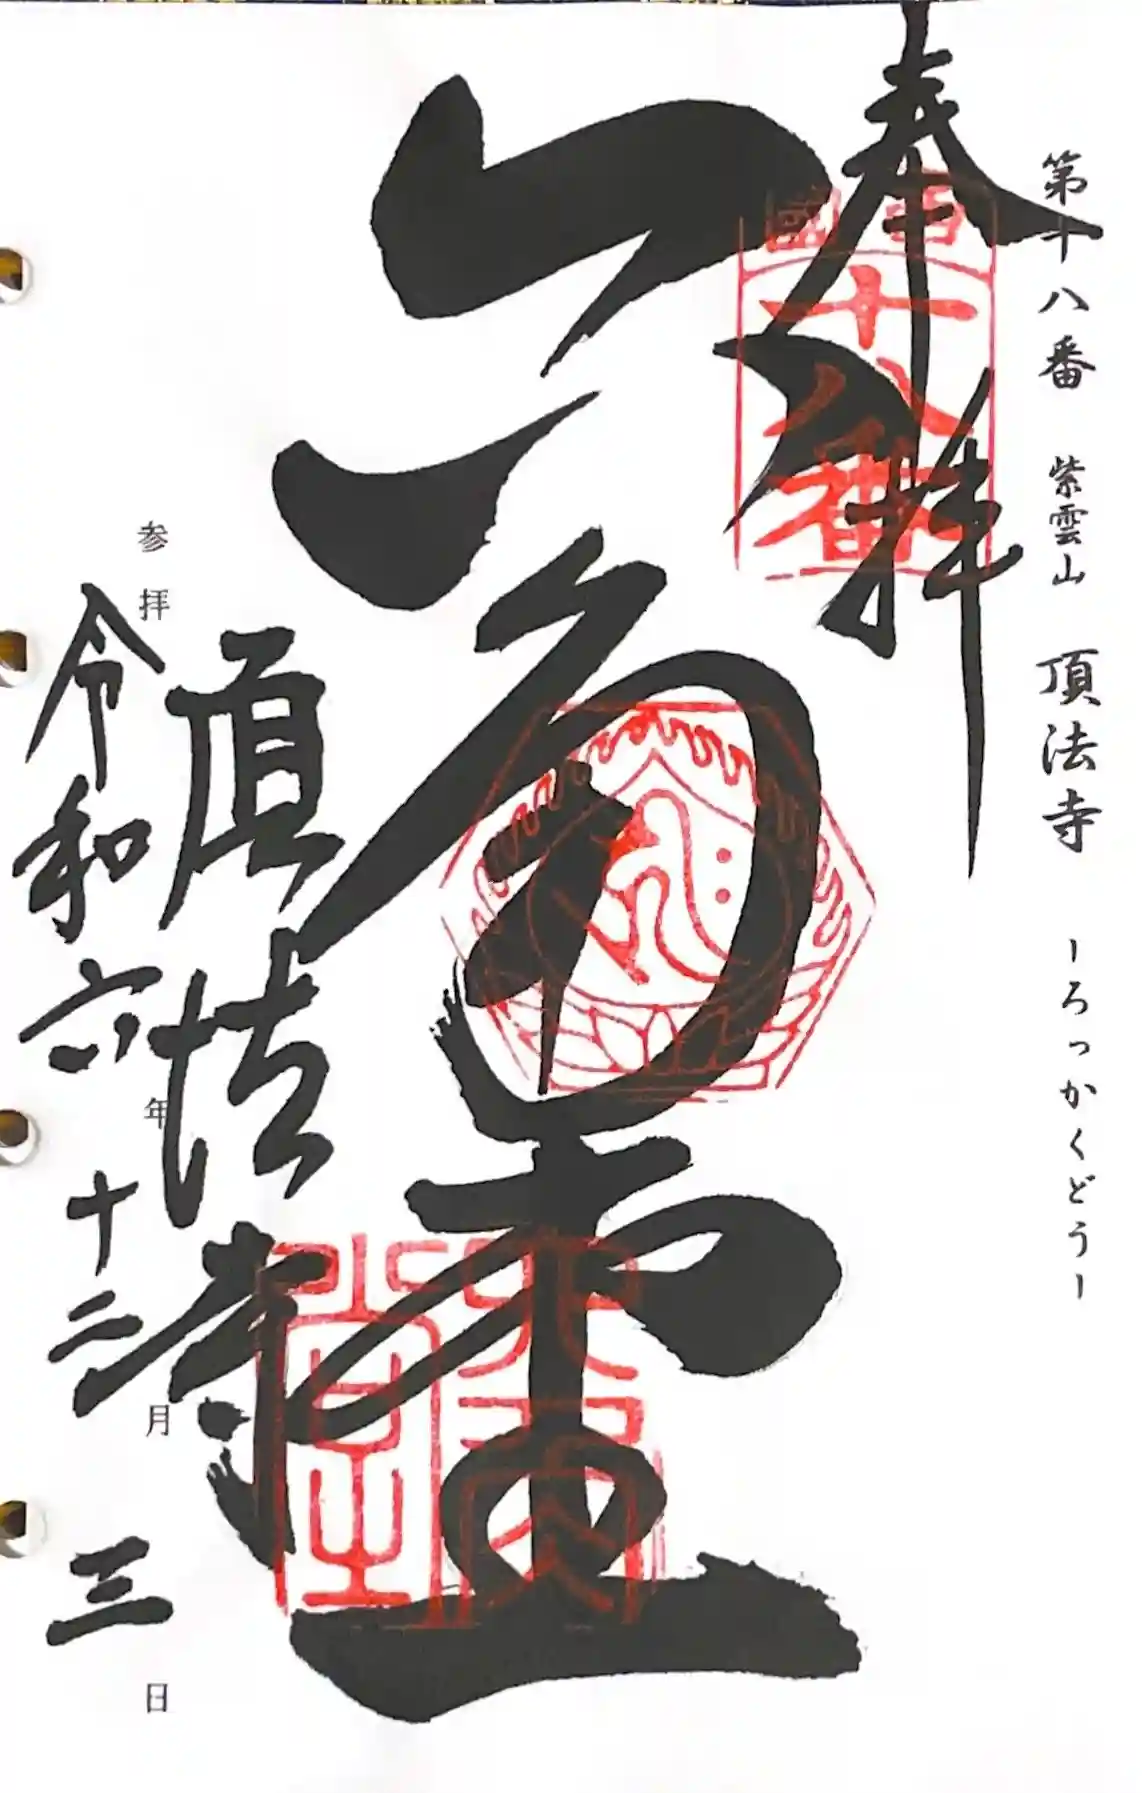 第十八番 紫雲山 頂法寺 ーろっかくどうー
奉拝
十八番
六角堂
頂法寺
参拝 令和六年十二月三日